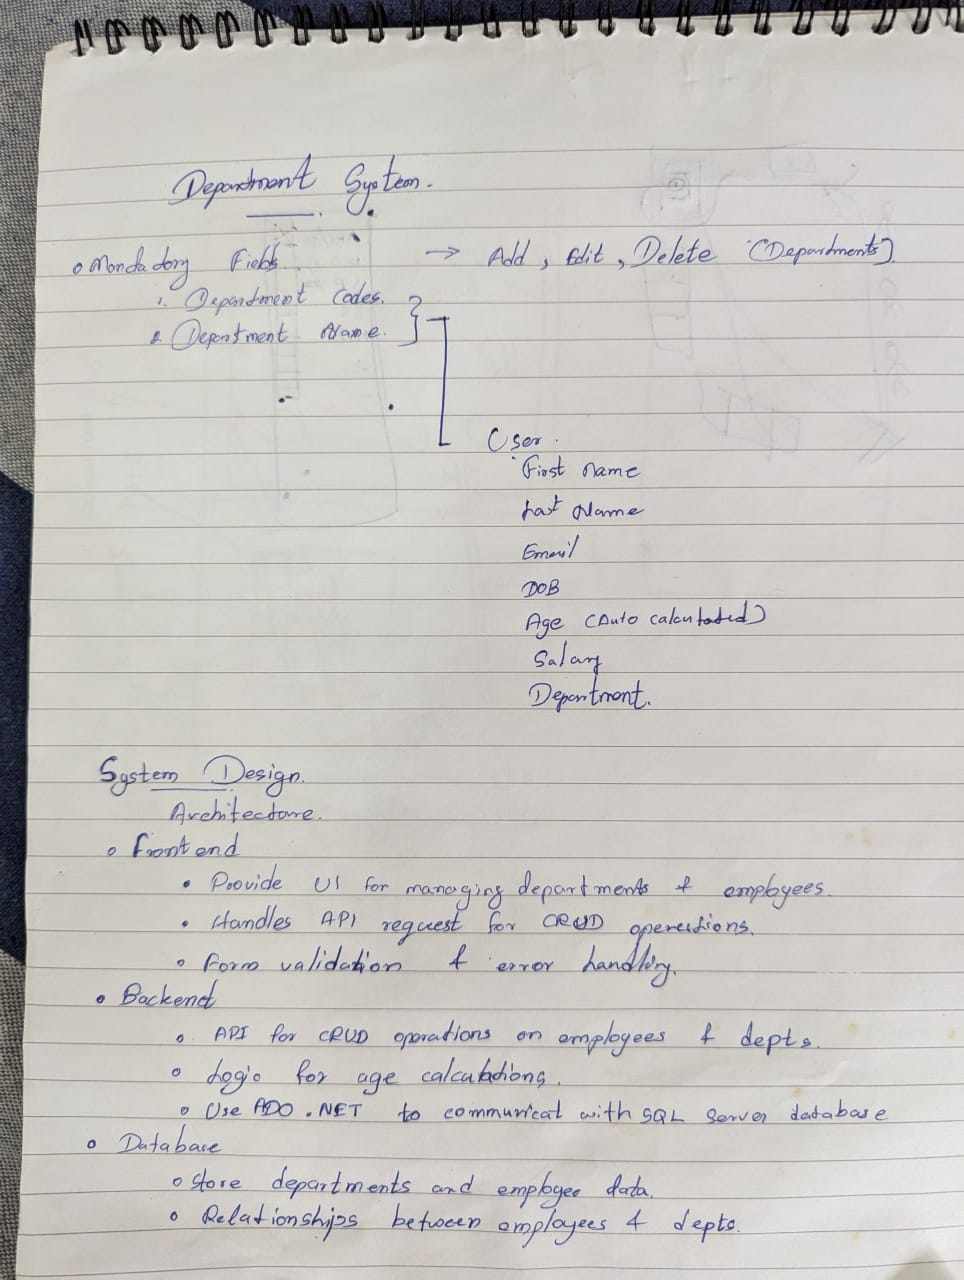 Department System.
o Mandadory Fields. → Add, Edit, Delete (Departments).
1. Department Codes.
2. Department Name.
User.
First Name
Last Name
Email
DOB
Age (Auto calculated)
Salary
Department.
System Design.
Architecture.
o Frontend
• Provide UI for managing departments & employees.
• Handles API request for CRUD operations.
o Form validation & error handling.
o Backend
o API for CRUD operations on employees & depts.
o Logic for age calculations.
o Use ADO .NET to communicat with SQL Server database
o Database
o Store departments and employee data.
o Relationships between employees & depts.